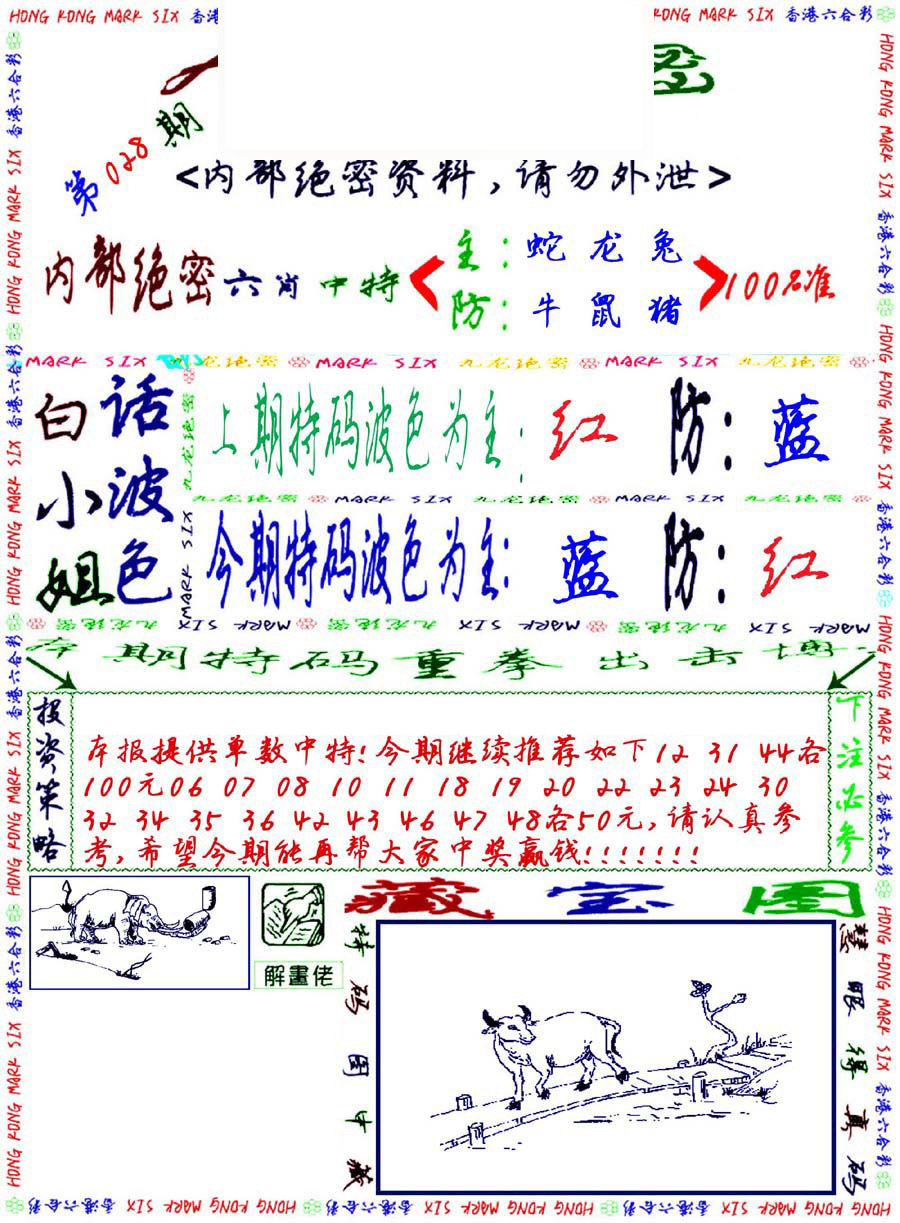 HONG KONG MARK SIX 香港六合彩
第028期
<内部绝密资料，请勿外泄>
内部绝密六肖中特
主：蛇 龙 兔
防：牛 鼠 猪
100%准
MARK SIX 九龙绝密 MARK SIX 九龙绝密 MARK SIX 九龙绝密
白话小姐
波色
上期特码波色为主：红 防：蓝
九龙绝密 MARK SIX 九龙绝密 MARK SIX 九龙绝密
今期特码波色为主：蓝 防：红
九龙绝密 MARK SIX 九龙绝密 MARK SIX 九龙绝密 MARK SIX
本期特码重拳出击
投资策略
本报提供单数中特!今期继续推荐如下12 31 44各
100元06 07 08 10 11 18 19 20 22 23 24 30
32 34 35 36 42 43 46 47 48各50元,请认真参
考,希望今期能再帮大家中奖赢钱!!!!!!!
下注必参
解畫佬
藏宝图
特码图中藏
慧眼得真码
HONG KONG MARK SIX 香港六合彩